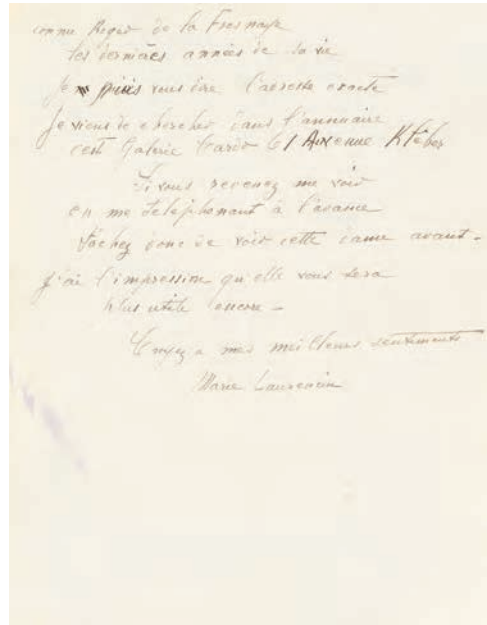 connu Roger de la Fresnaye
les dernières années de sa vie
Je puis vous dire l'adresse exacte
Je viens de chercher dans l'annuaire
c'est Galerie Cardo 61 Avenue Kleber
Si vous revenez me voir
en me téléphonant à l'avance
tâchez donc de voir cette dame avant -
j'ai l'impression qu'elle vous sera
plus utile encore -
Croyez a mes meilleurs sentiments
Marie Laurencin